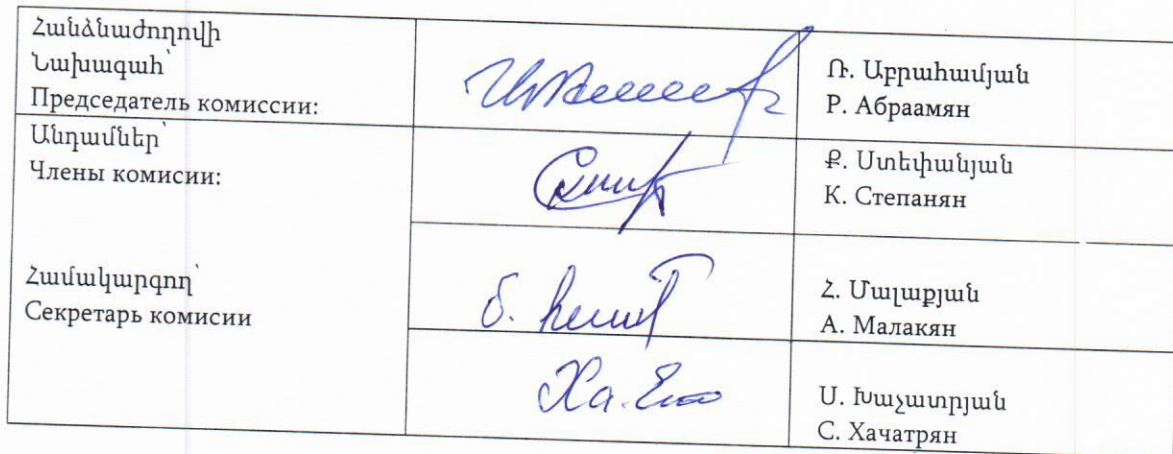 Հանձնաժողովի
Նախագահ՝
Председатель комиссии:
Ռ. Աբրահամյան
Р. Абраамян
Անդամներ՝
Члены комисии:
Ք. Ստեփանյան
К. Степанян
Համակարգող՝
Секретарь комисии
Հ. Մալաքյան
А. Малакян
Ս. Խաչատրյան
С. Хачатрян